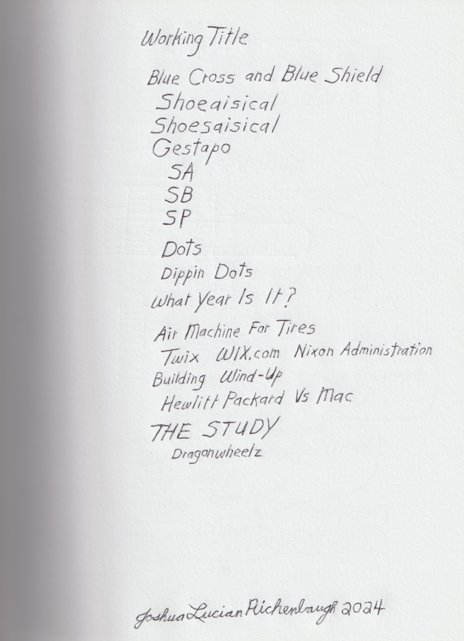 Working Title
Blue Cross and Blue Shield
Shoeaisical
Shoesaisical
Gestapo
SA
SB
SP
Dots
Dippin Dots
What Year Is It?
Air Machine For Tires
Twix WIX.com Nixon Administration
Building Wind-Up
Hewlitt Packard Vs Mac
THE STUDY
Dragonwheelz
Joshua Lucian Richenbaugh 2024